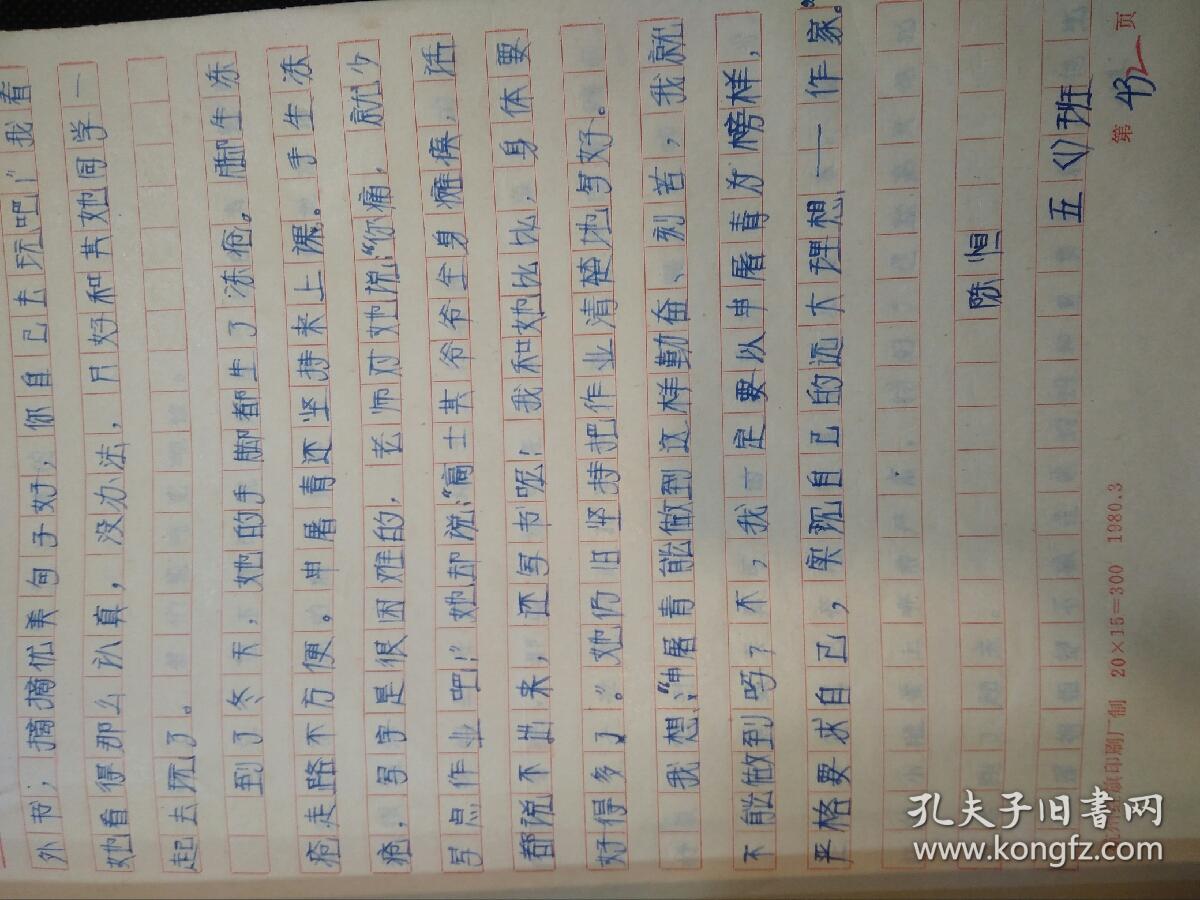 外书，摘摘优美句子好，你自己去玩吧！”我看
她看得那么认真，没办法，只好和其她同学一
起去玩了。
到了冬天，她的手脚都生了冻疮。脚生冻
疮走路不方便。申屠青还坚持来上课。手生冻
疮，写字是很困难的，老师对她说：“你痛，就少
写点作业吧！”她却说：“高士其爷爷全身瘫痪，话
都说不出来，还写书呢！我和她比比，身体要
好得多了。”她仍旧坚持把作业清楚地写好。
我想：“申屠青能做到这样勤奋、刻苦，我就
不能做到吗？不，我一定要以申屠青为榜样，
严格要求自己，实现自己的远大理想——作家。”
陈恒
五（1）班
旗印刷厂制 20×15=300 1980.3
第 432 页
孔夫子旧书网
www.kongfz.com